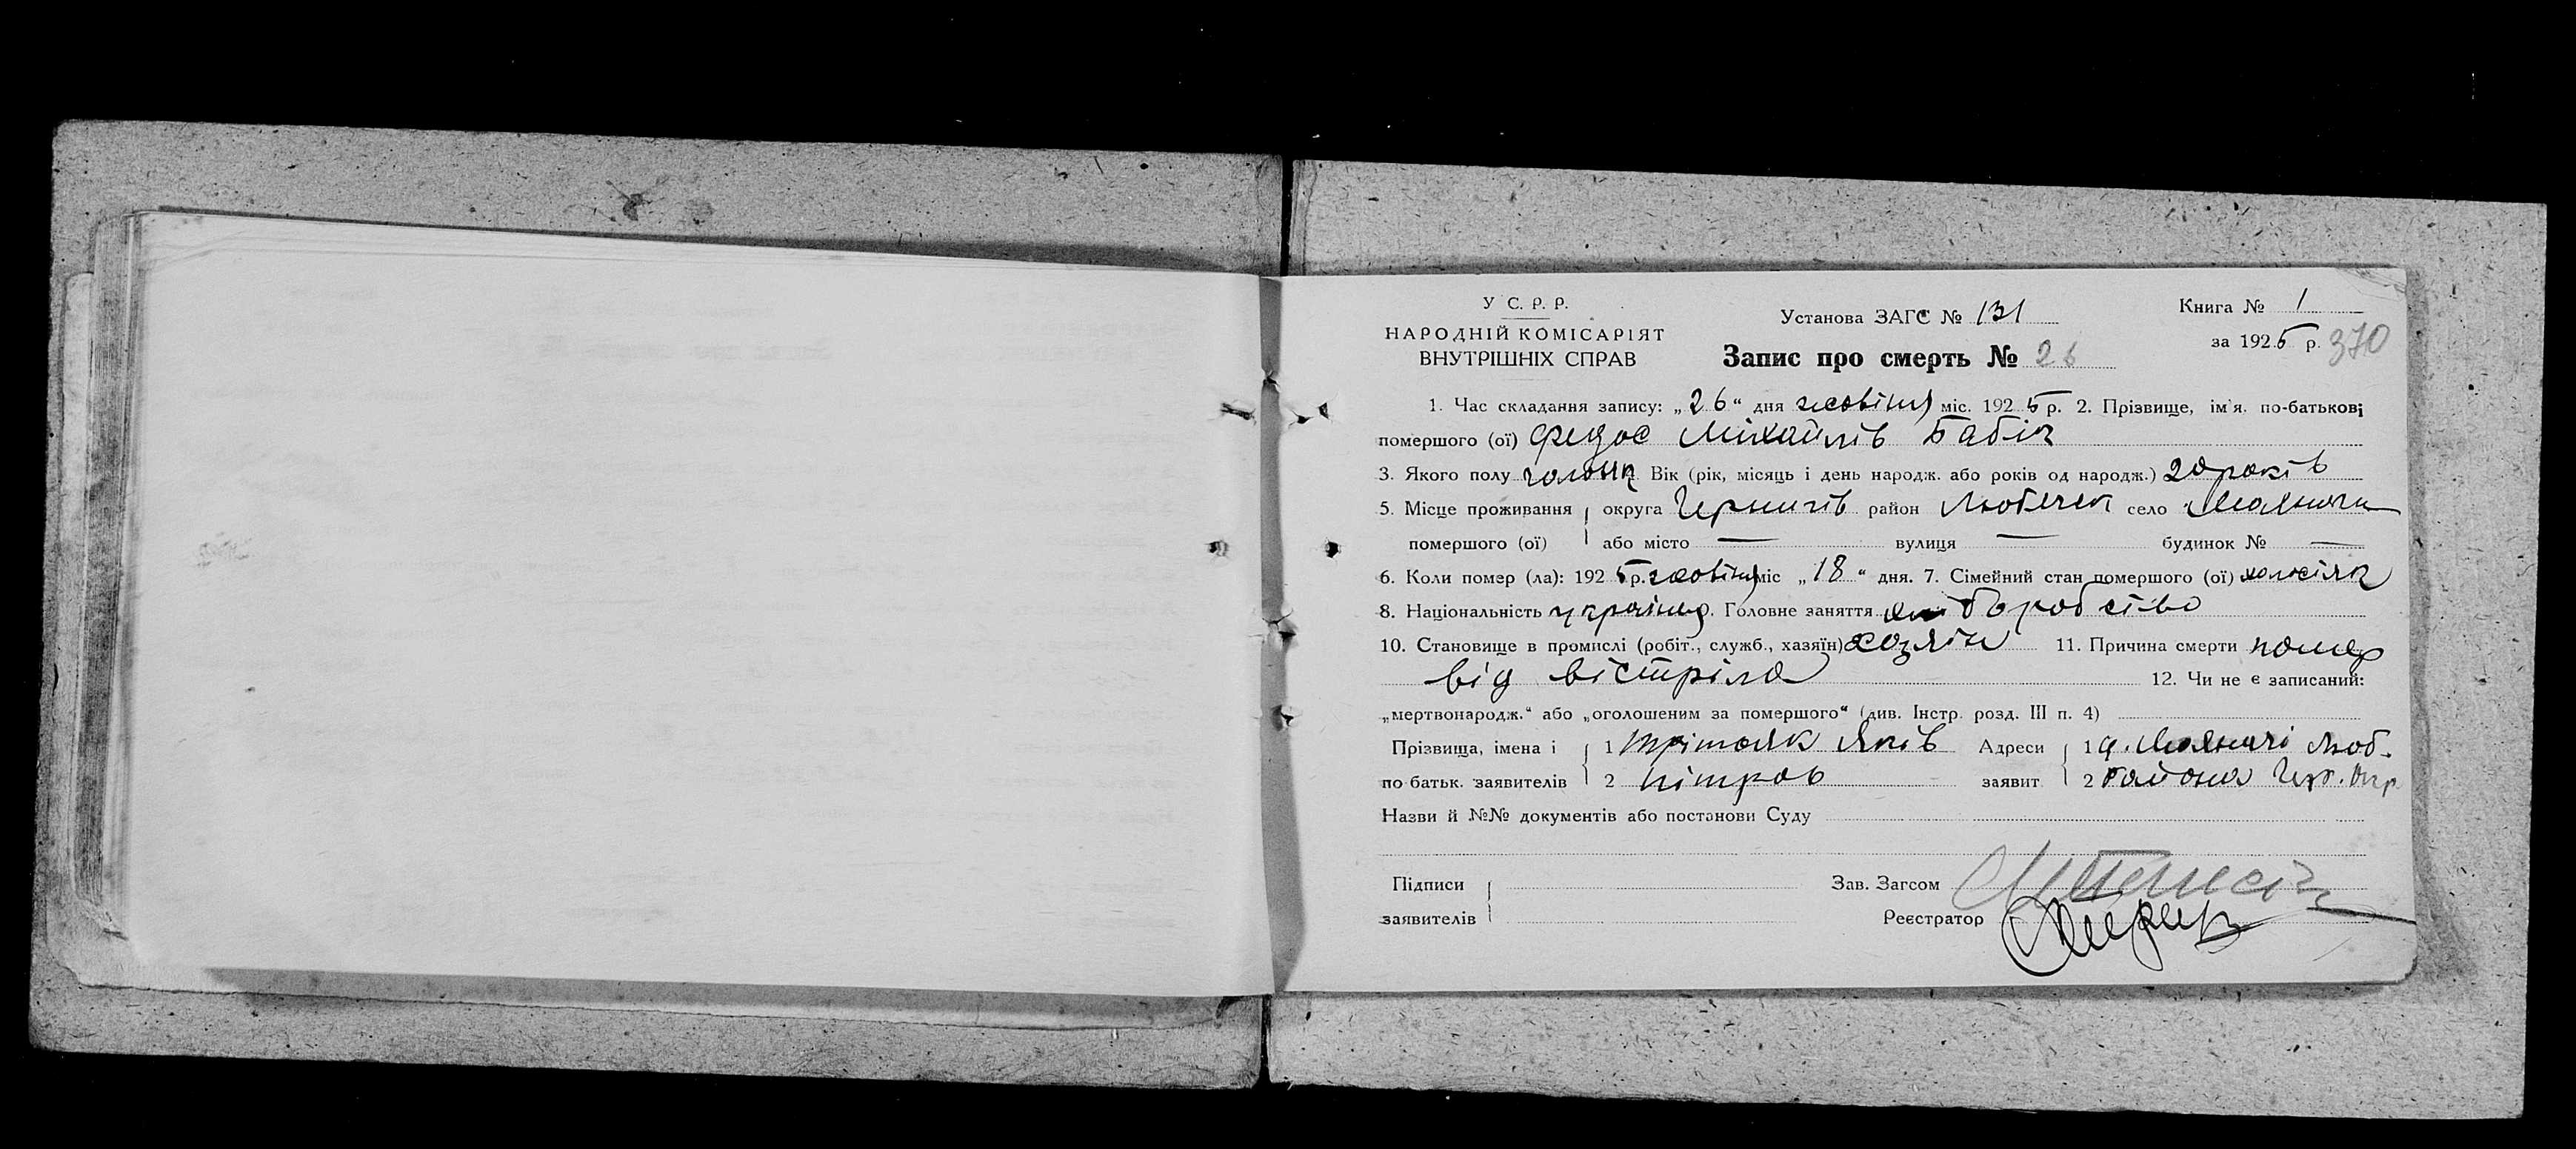 У С. Р. Р.
НАРОДНІЙ КОМІСАРІЯТ
ВНУТРІШНІХ СПРАВ
Установа ЗАГС № 131
Запис про смерть № 26
Книга № 1
за 1925 р. 370
1. Час складання запису: „26“ дня жовтня міс. 1925 р. 2. Прізвище, ім'я, по-батькові
помершого (ої) Федос Міхайлів Бабіч
3. Якого полу Вік (рік, місяць і день народж. або років од народж.) 20 років
5. Місце проживання округа Чернигів район Любечск село
помершого (ої) або місто — вулиця — будинок № —
6. Коли помер (ла): 1925 р. міс „18“ дня. 7. Сімейний стан помершого (ої) холосіяк
8. Національність україна. Головне заняття
10. Становище в промислі (робіт., служб., хазяїн) хозяін 11. Причина смерти помер
від вістріла 12. Чи не є записаний:
„мертвонародж.“ або „оголошеним за помершого“ (див. Інстр. розд. III п. 4)
Прізвища, імена і 1 Яків Адреси 1 Люб-
по батьк. заявителів 2 Пітров заявит 2 района Чер. Окр.
Назви й №№ документів або постанови Суду
Підписи Зав. Загсом
заявителів Реєстратор